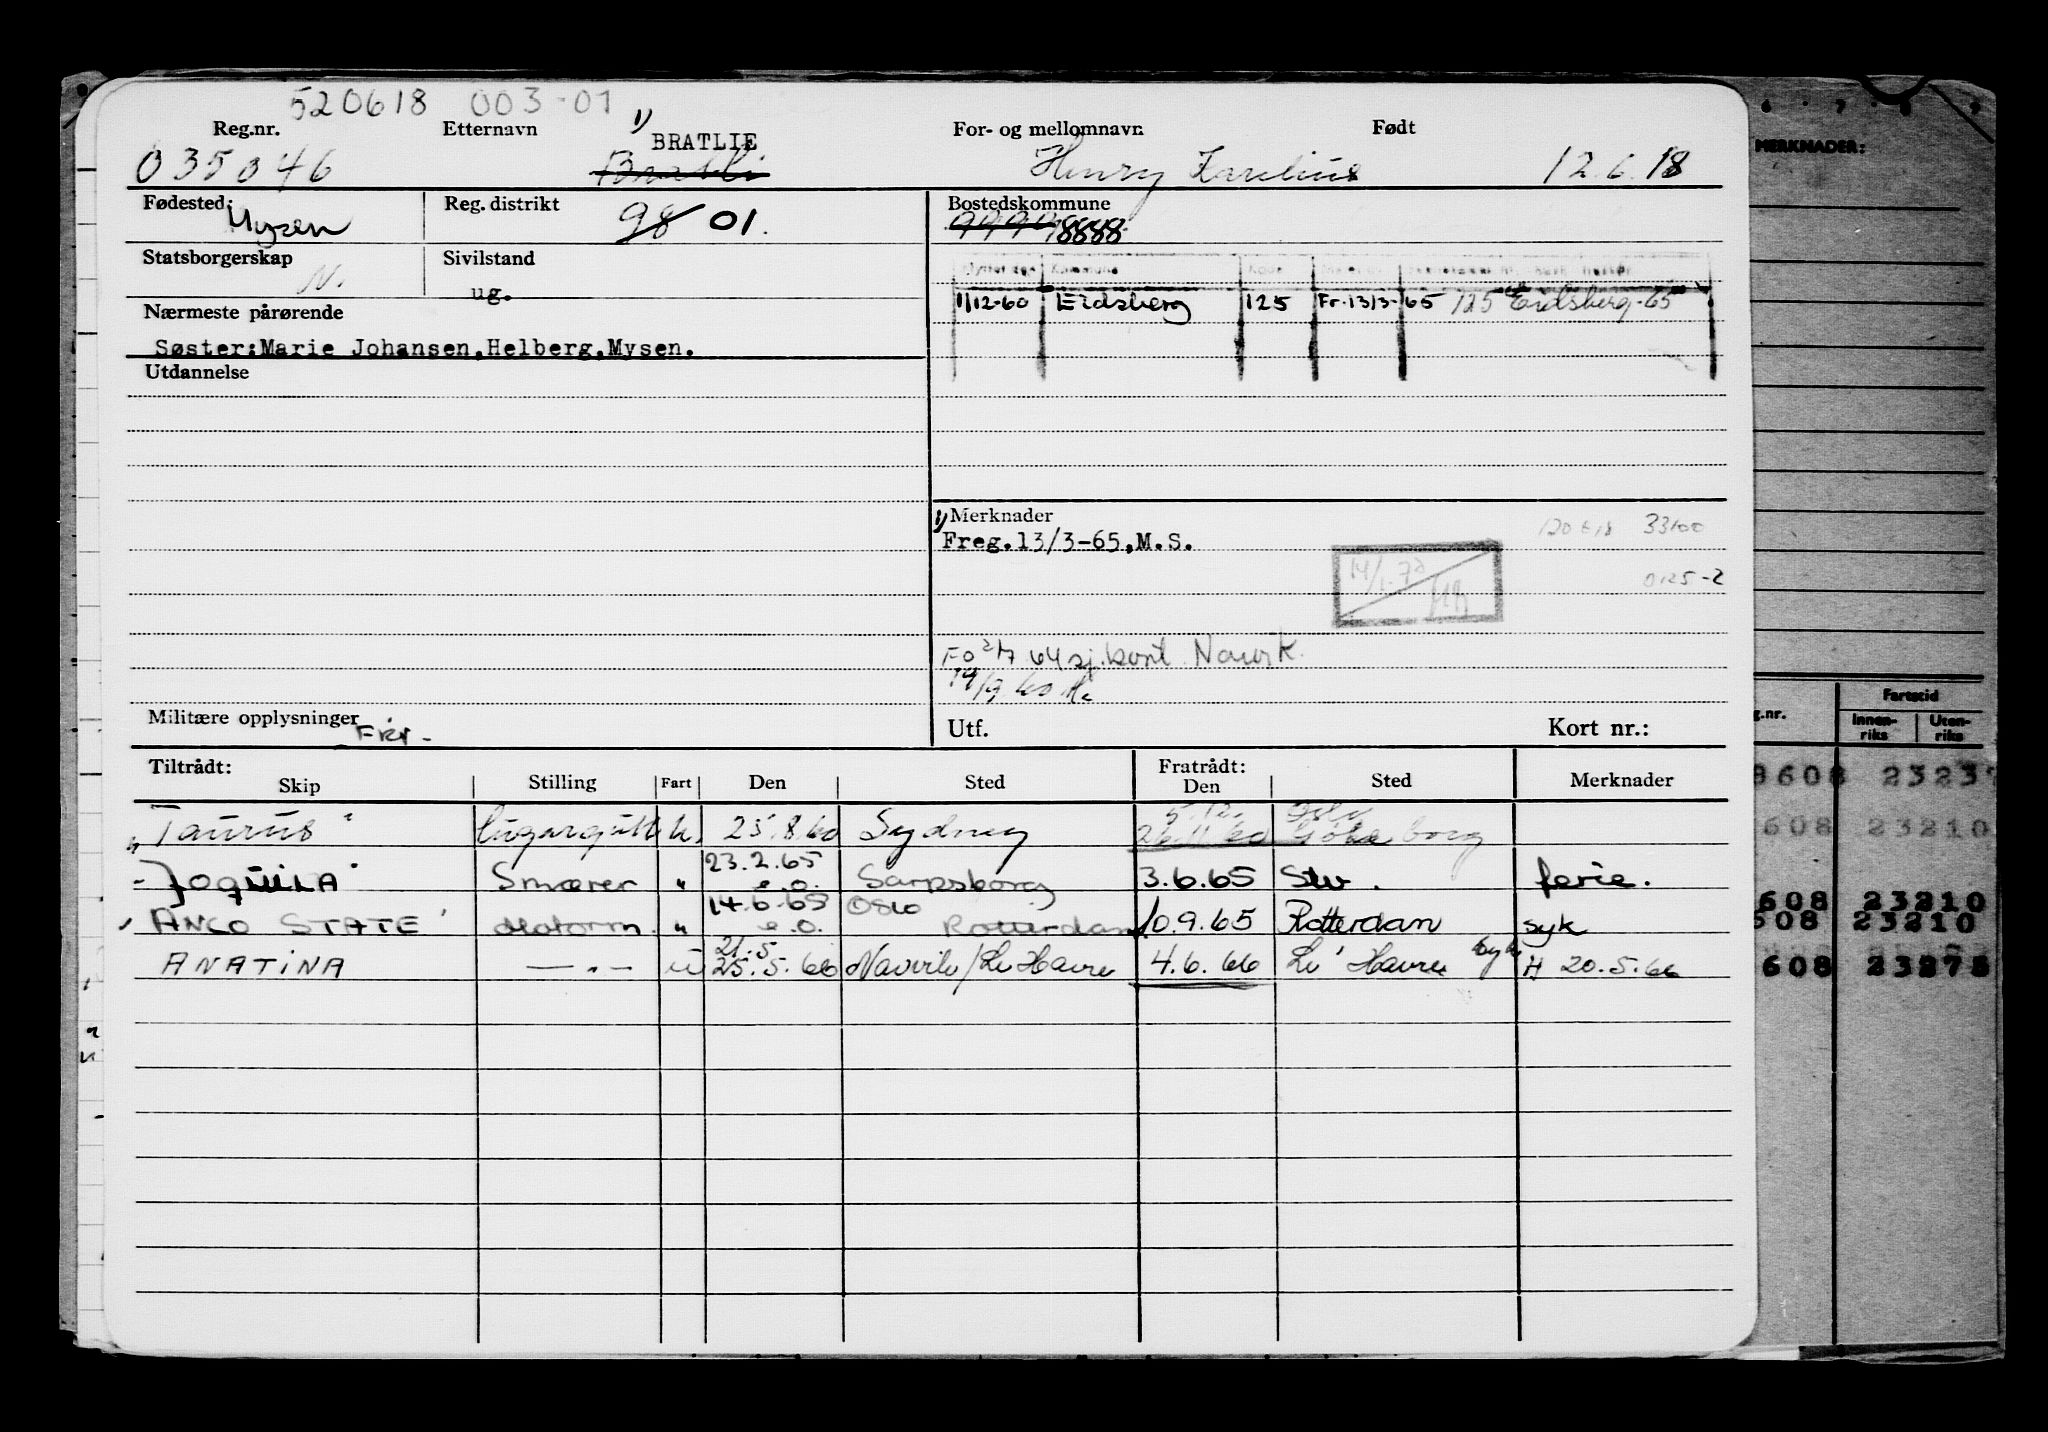 520618 003-01
Reg.nr. Etternavn 1) BRATLIE For- og mellomnavn Født
035046 Bratli Henry Karelius 12.6.18
Fødested: Mysen Reg. distrikt 98 01. Bostedskommune
9999 8888
Statsborgerskap N. Sivilstand ug.
Flyttet den Kommune
1/12-60 Eidsberg 125 Fr. 13/3-65 125 Eidsberg-65
Nærmeste pårørende
Søster:Marie Johansen,Helberg,Mysen.
Utdannelse
1) Merknader
Freg.13/3-65,M.S. 33100
14/1-72
0125-2
FO 2/7 64 sj.kont. Narvik.
Militære opplysninger Fri-
Utf. Kort nr.:
Tiltrådt: Fratrådt:
Skip Stilling Fart Den Sted Den Sted Merknader
5.12. Oslo
"Taurus" lugargutt u. 25.8.60 Sydney 26.11.60 Göteborg
"JOQUILA" Smører " 23.2.65 e.o. Sarpsborg 3.6.65 Stv. ferie.
"ANCO STATE" Motorm. " 14.6.65 e.o. Oslo Rotterdam 10.9.65 Rotterdam syk
ANATINA —"— u 21.5 25.5.66 Narvik/Le Havre 4.6.66 Le Havre syk H 20.5.66
6 7 8 9
MERKNADER:
g.nr. Fartstid
Innen-riks Uten-riks
8608 2323
608 23210
608 23210
608 23210
608 23273